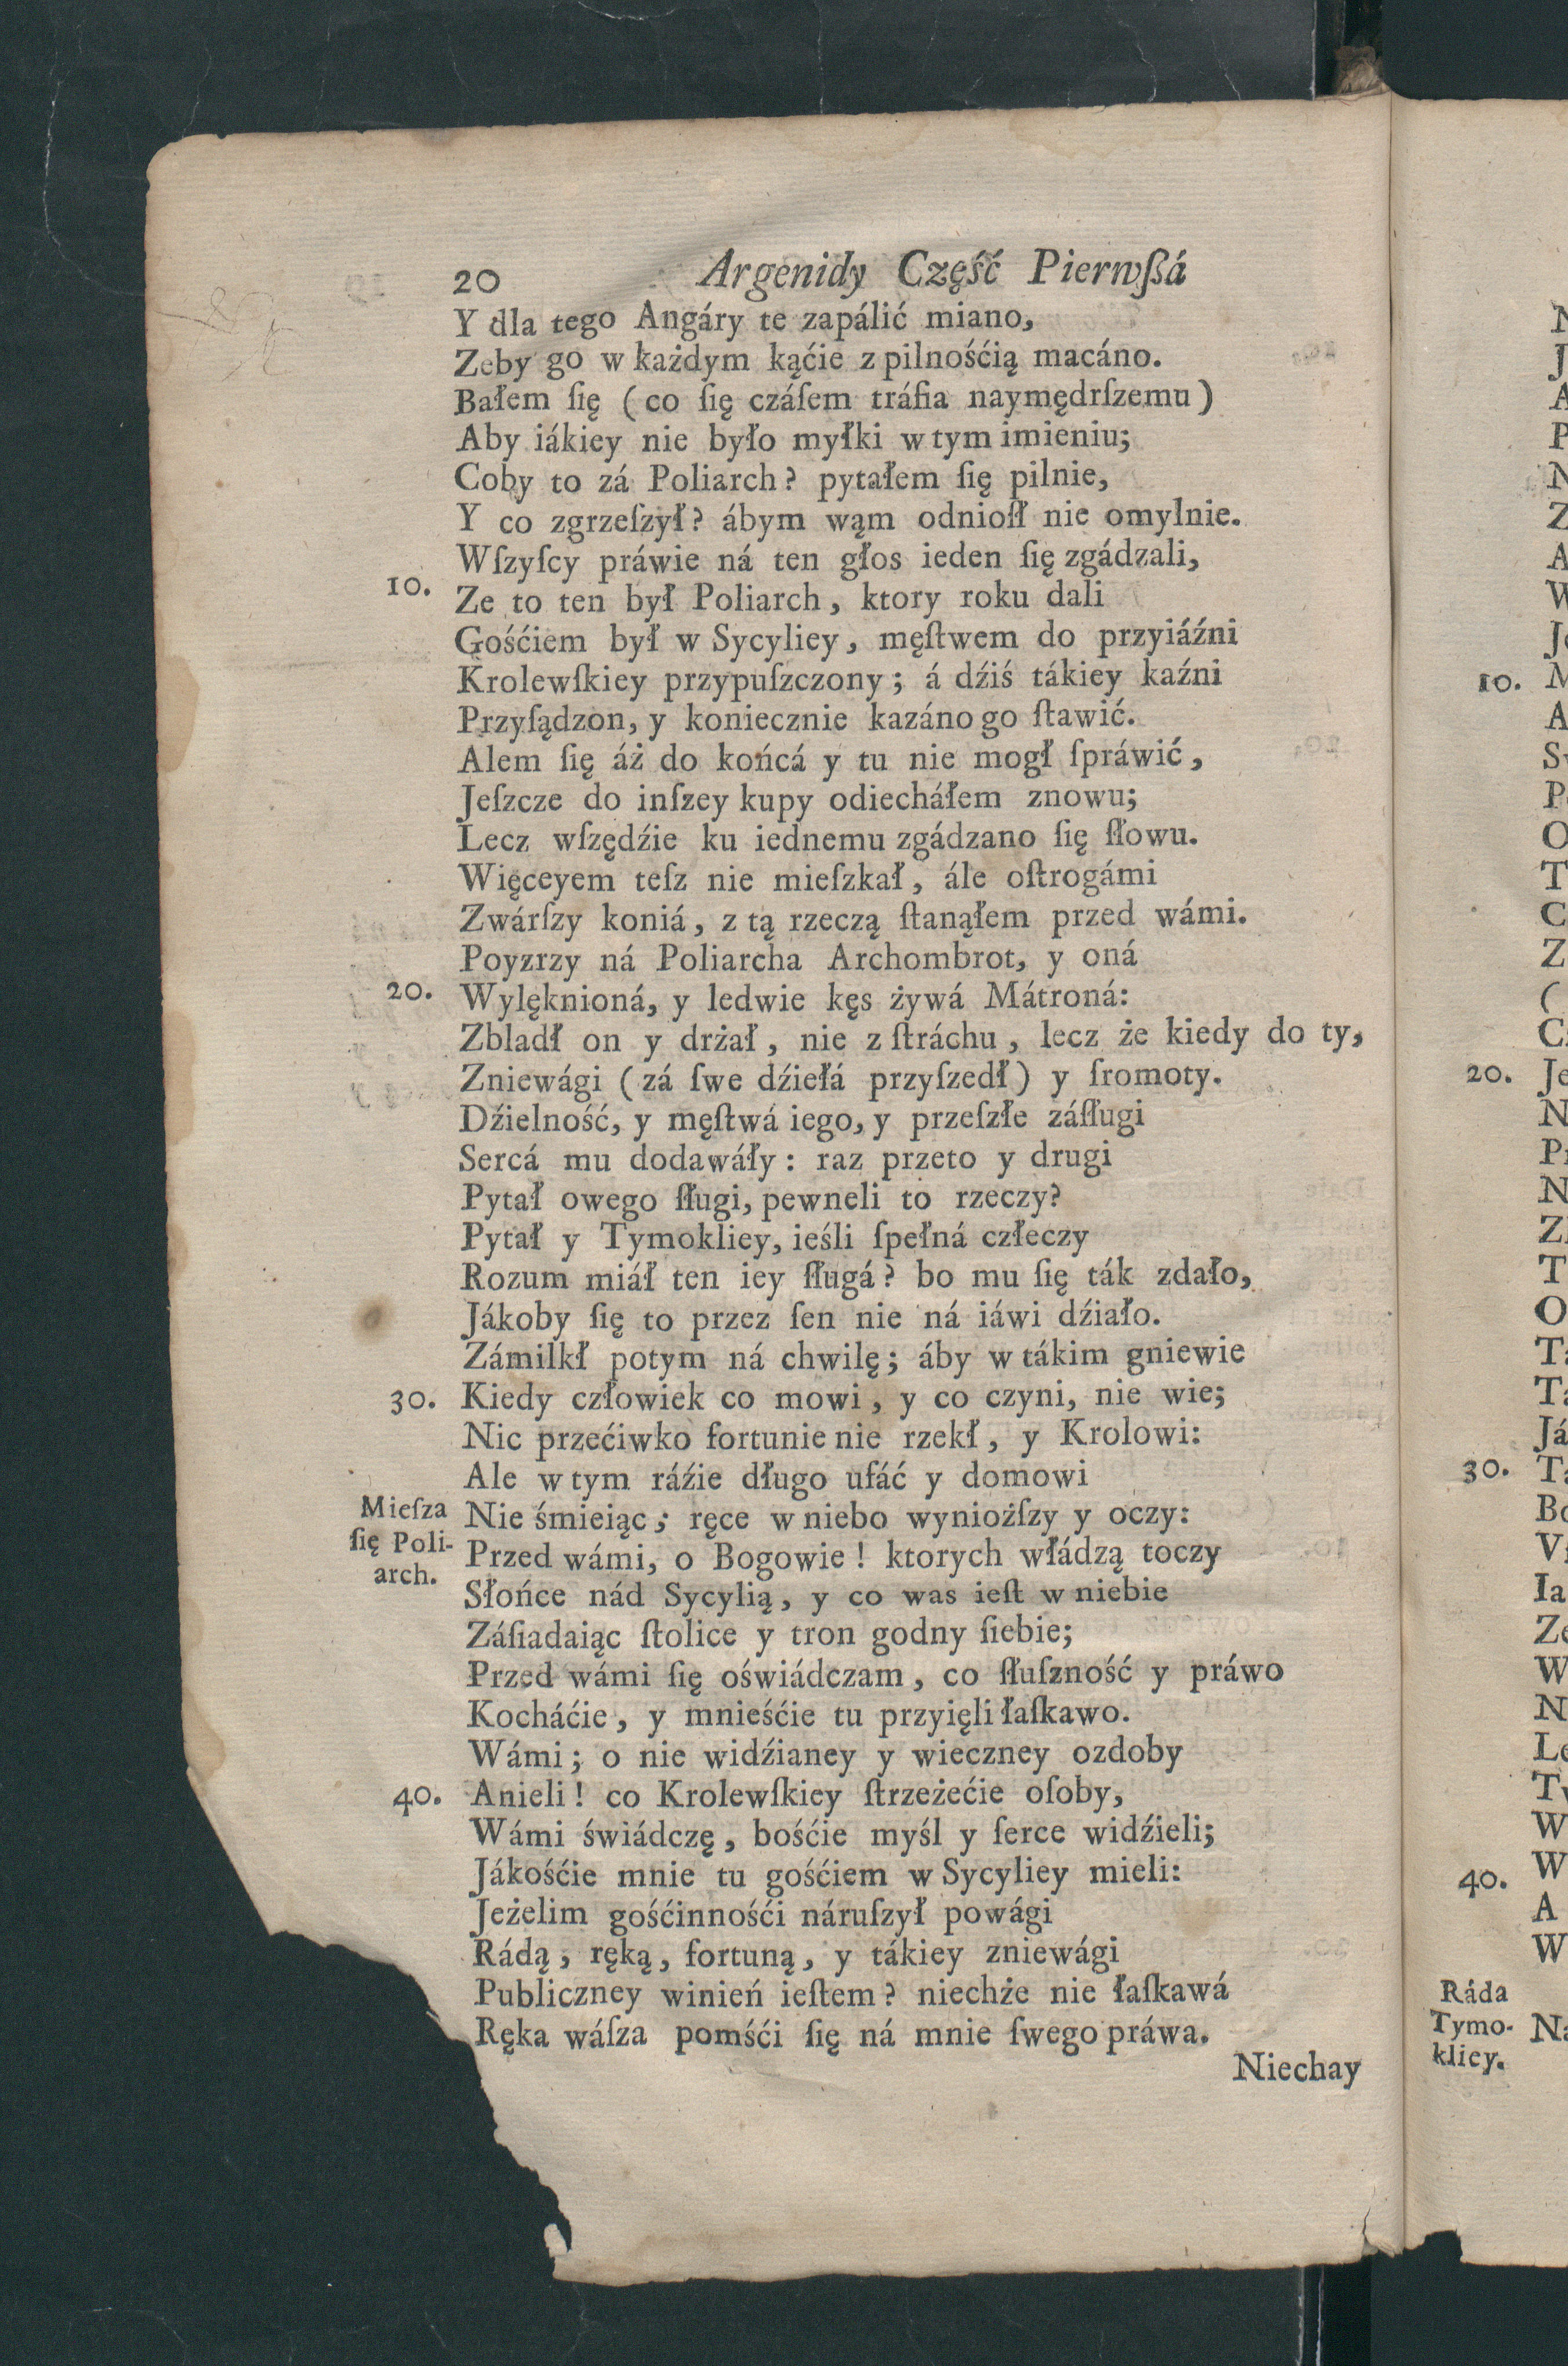 20 Argenidy Część Pierwßá
Y dla tego Angáry te zapálić miano,
Zeby go w każdym kąćie z pilnośćią macáno.
Bałem ſię (co ſię czáſem tráfia naymędrſzemu)
Aby iákiey nie było myłki w tym imieniu;
Coby to zá Poliarch? pytałem ſię pilnie,
Y co zgrzeſzył? ábym wąm odnioſł nie omylnie.
Wſzyſcy práwie ná ten głos ieden ſię zgádzali,
10. Ze to ten był Poliarch, ktory roku dali
Gośćiem był w Sycyliey, męſtwem do przyiáźni
Krolewſkiey przypuſzczony; á dźiś tákiey kaźni
Przyſądzon, y koniecznie kazáno go ſtawić.
Alem ſię áż do końcá y tu nie mogł ſpráwić,
Jeſzcze do inſzey kupy odiecháłem znowu;
Lecz wſzędźie ku iednemu zgádzano ſię ſłowu.
Więceyem teſz nie mieſzkał, ále oſtrogámi
Zwárſzy koniá, z tą rzeczą ſtanąłem przed wámi.
Poyzrzy ná Poliarcha Archombrot, y oná
20. Wylęknioná, y ledwie kęs żywá Mátroná:
Zbladł on y drżał, nie z ſtráchu, lecz że kiedy do ty,
Zniewági (zá ſwe dźiełá przyſzedł) y ſromoty.
Dźielność, y męſtwá iego, y przeſzłe záſługi
Sercá mu dodawáły: raz przeto y drugi
Pytał owego ſługi, pewneli to rzeczy?
Pytał y Tymokliey, ieśli ſpełná człeczy
Rozum miáł ten iey ſługá? bo mu ſię ták zdało,
Jákoby ſię to przez ſen nie ná iáwi dźiało.
Zámilkł potym ná chwilę; áby w tákim gniewie
30. Kiedy człowiek co mowi, y co czyni, nie wie;
Nic przećiwko fortunie nie rzekł, y Krolowi:
Ale w tym ráźie długo ufáć y domowi
Mieſza
ſię Poli-
arch.
Nie śmieiąc; ręce w niebo wynioźſzy y oczy:
Przed wámi, o Bogowie! ktorych włádzą toczy
Słońce nád Sycylią, y co was ieſt w niebie
Záſiadaiąc ſtolice y tron godny ſiebie;
Przed wámi ſię oświádczam, co ſłuſzność y práwo
Kocháćie, y mnieśćie tu przyięli łaſkawo.
Wámi; o nie widźianey y wieczney ozdoby
40. Anieli! co Krolewſkiey ſtrzeżećie oſoby,
Wámi świádczę, bośćie myśl y ſerce widźieli;
Jákośćie mnie tu gośćiem w Sycyliey mieli:
Jeżelim gośćinnośći náruſzył powági
Rádą, ręką, fortuną, y tákiey zniewági
Publiczney winień ieſtem? niechże nie łaſkawá
Ręka wáſza pomśći ſię ná mnie ſwego práwa.
Niechay
10.
20.
30.
40.
Ráda
Tymo-
kliey.